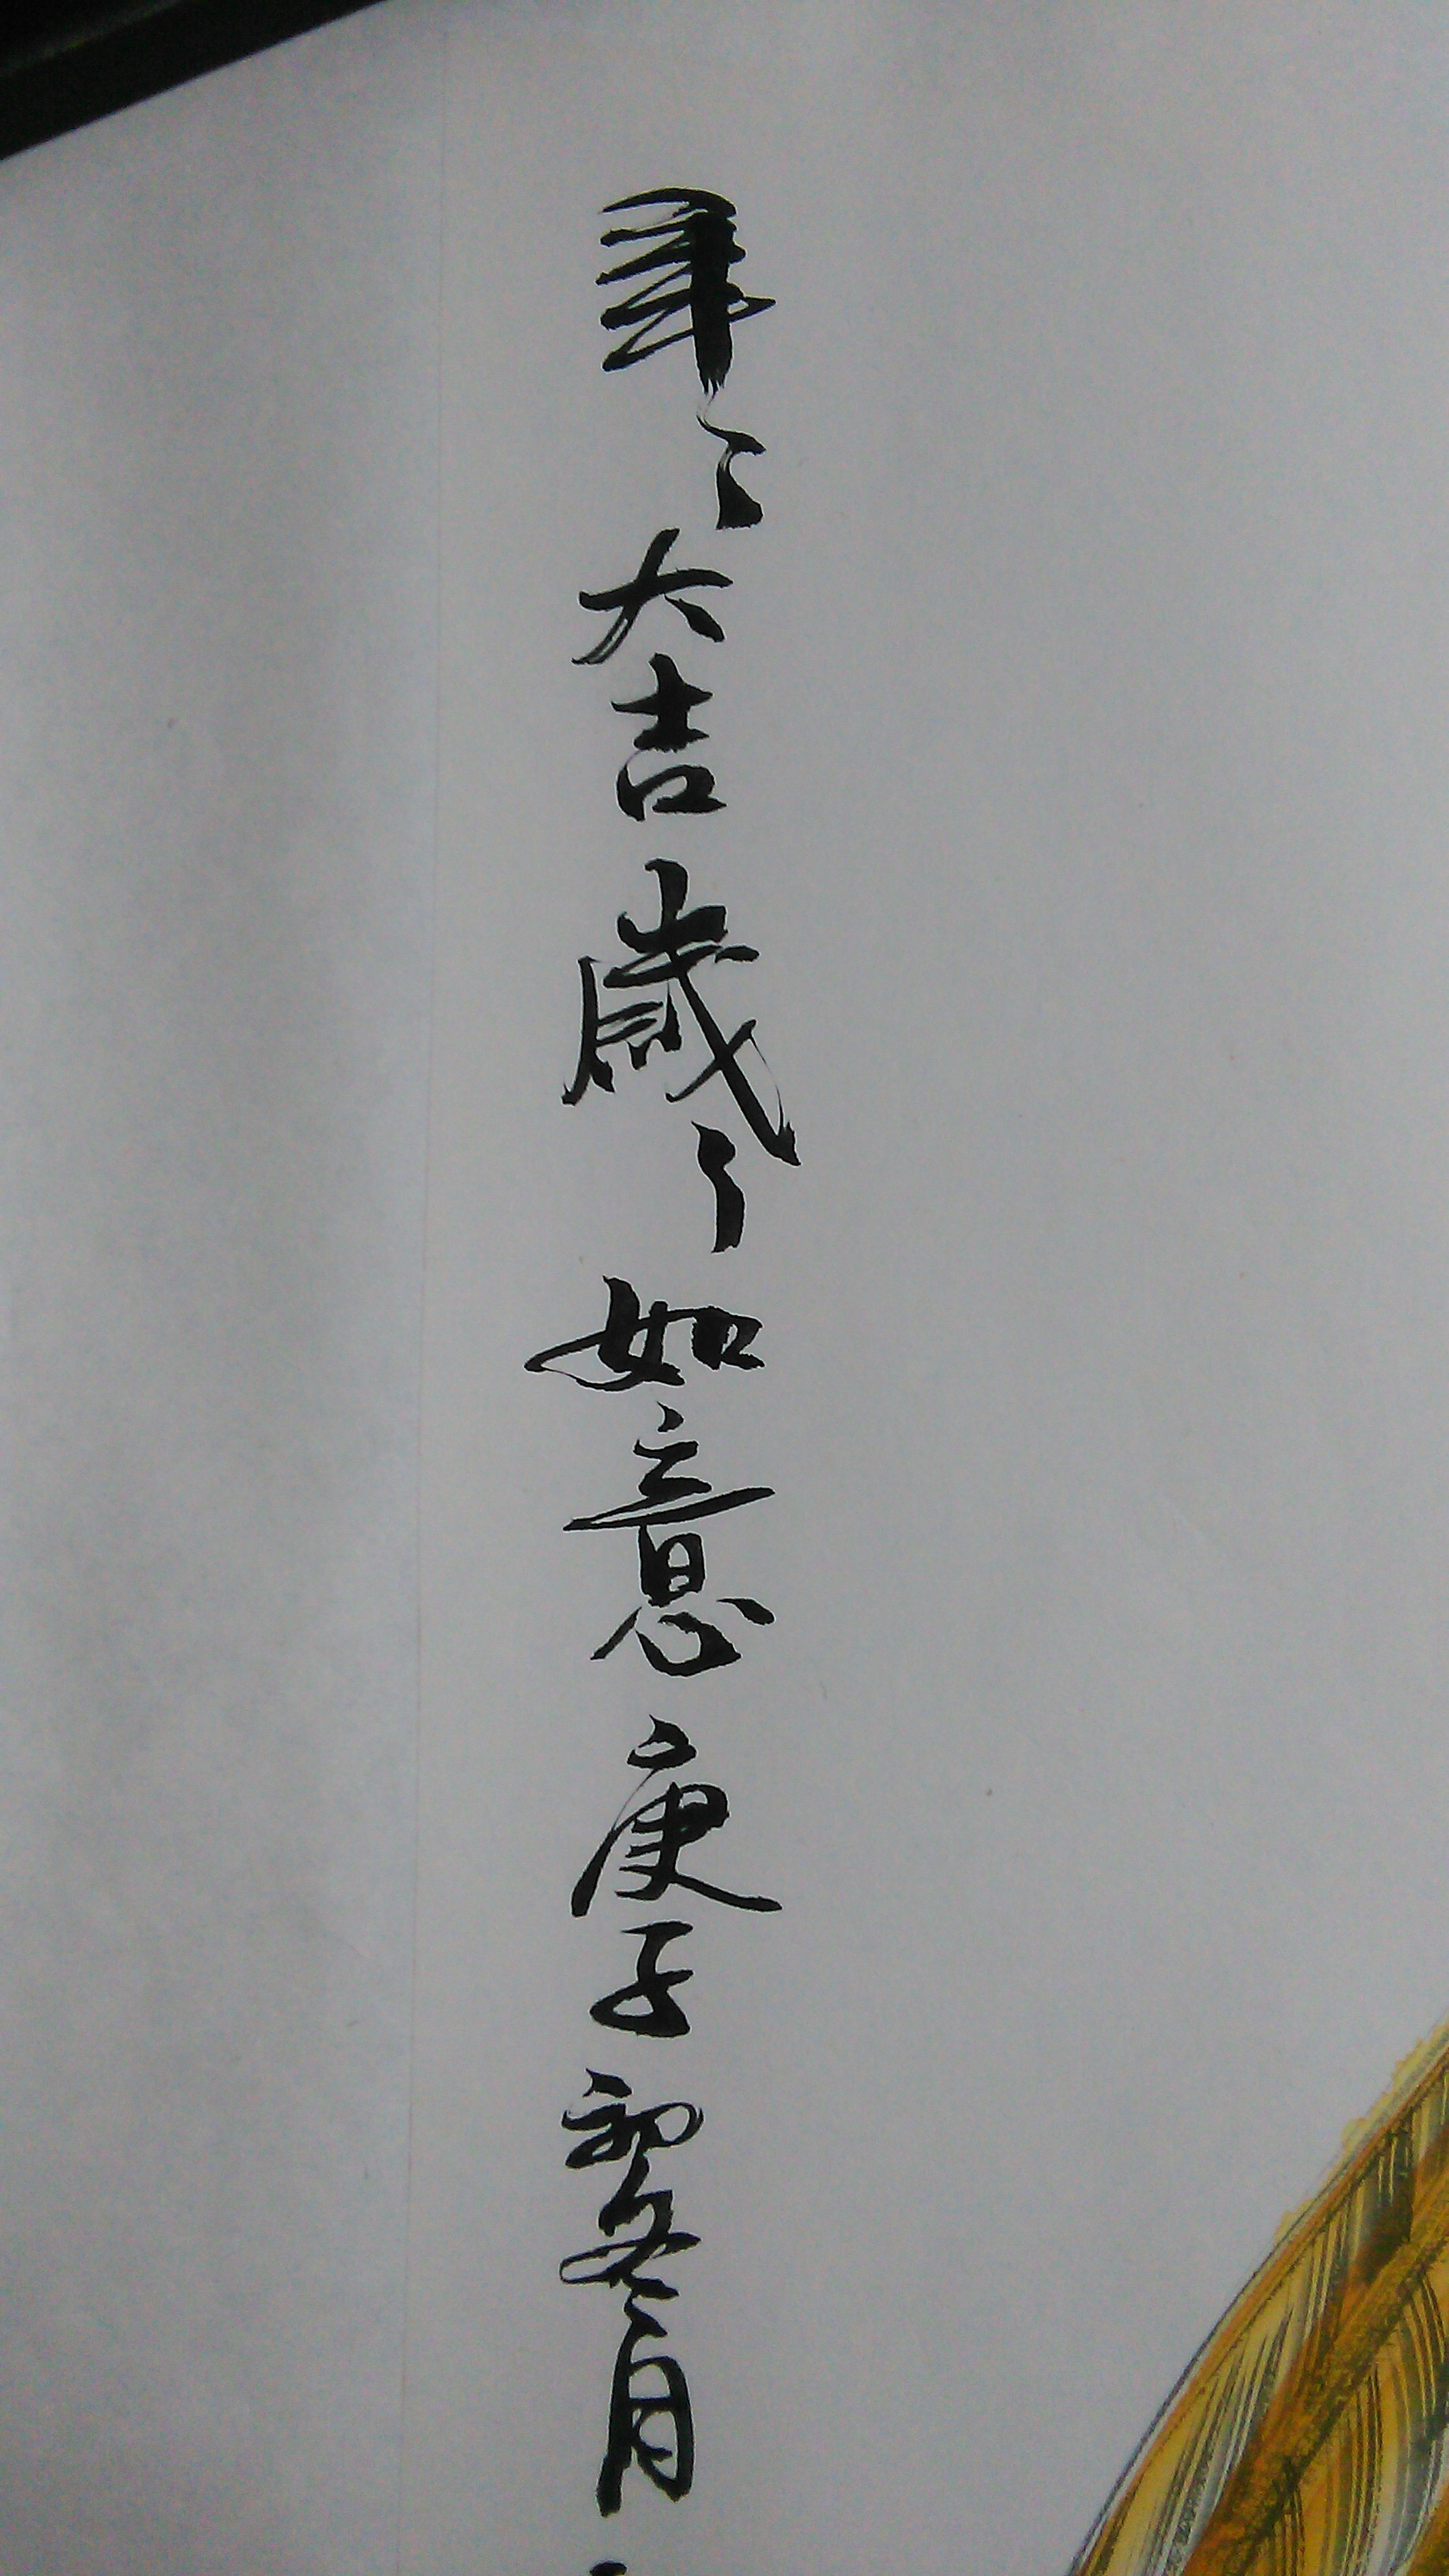 年〻大吉歲〻如意庚子初冬月